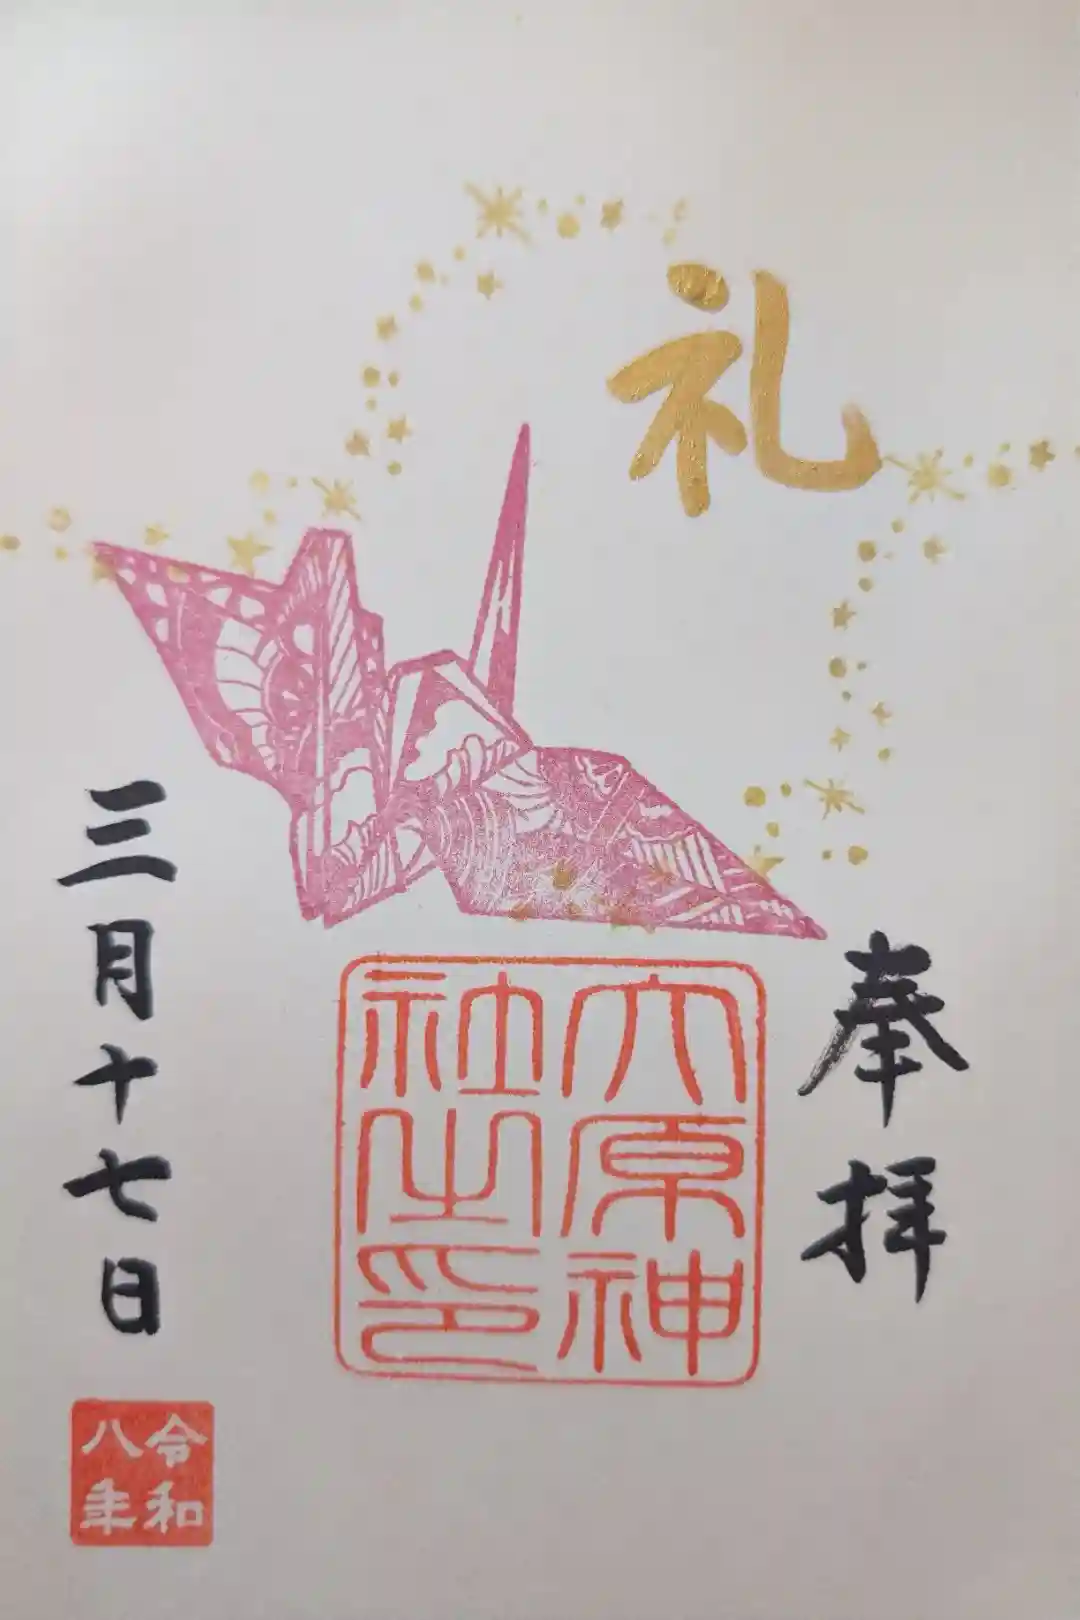 奉拝
礼
大原神
社之印
三月十七日
令和
八年